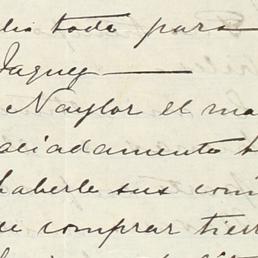 toda para
Jaguey
Naylor el ma
ciadamente t
haberle sus com
e comprar tierr